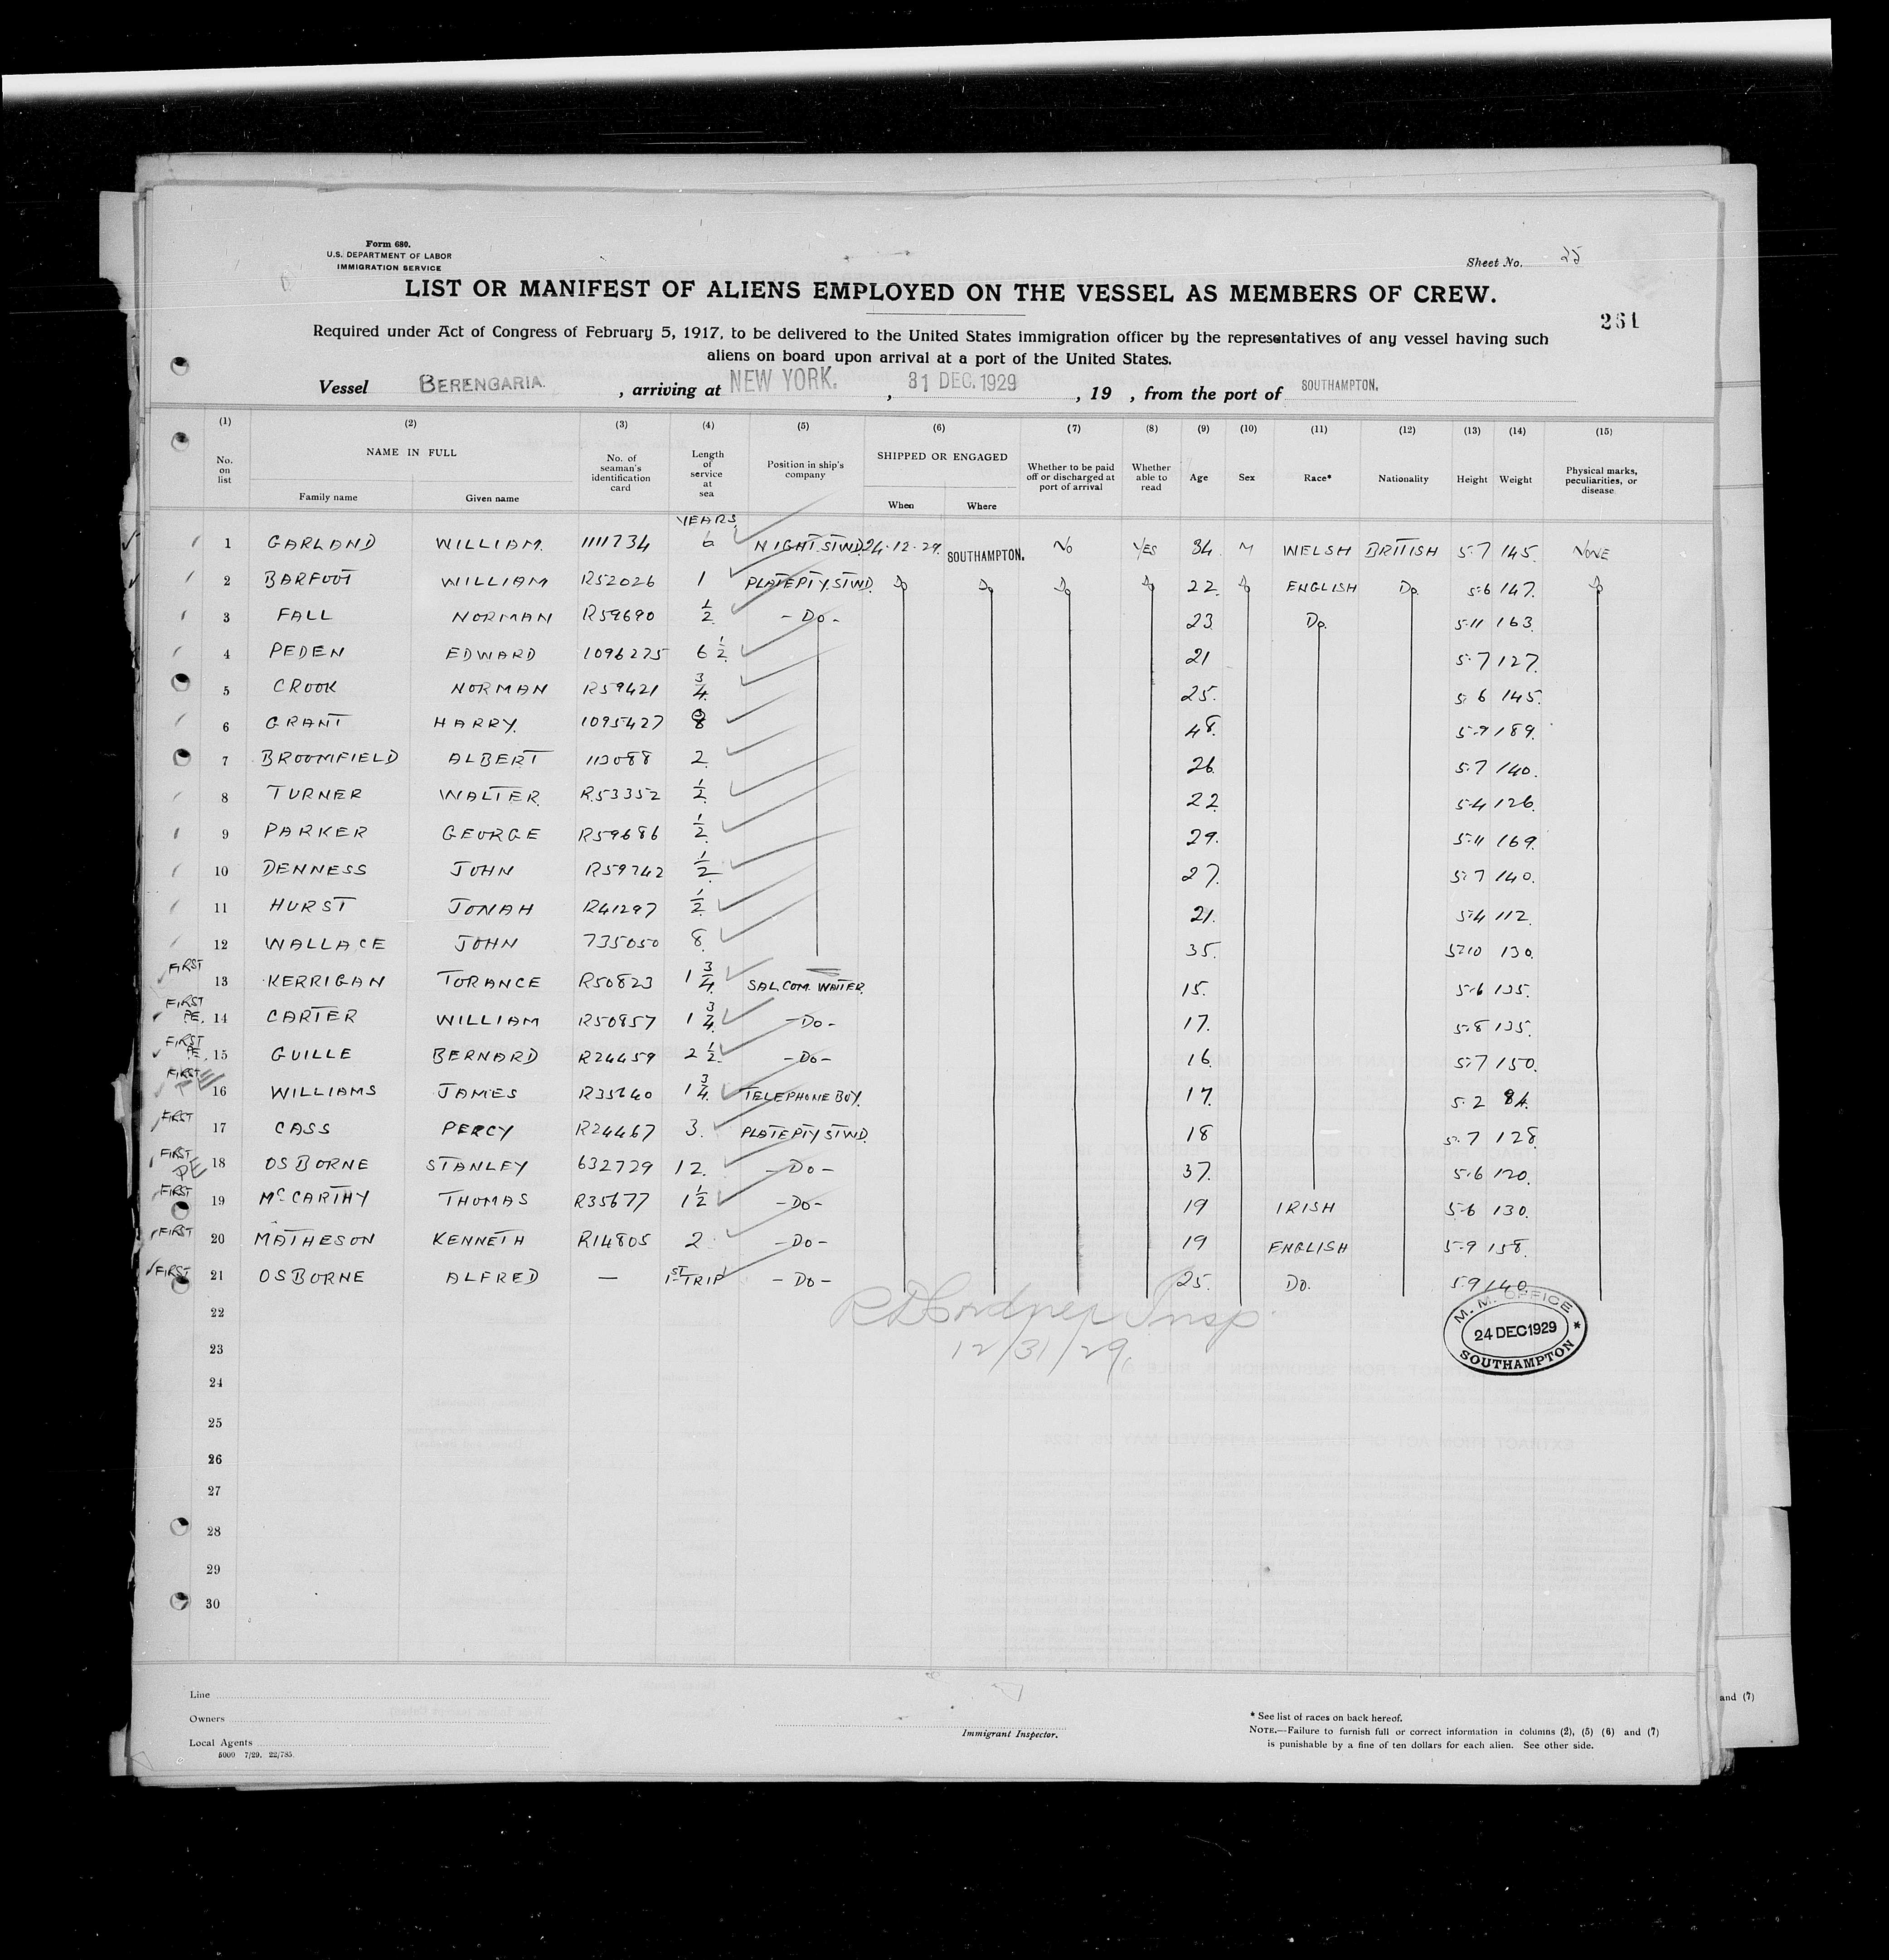 Form 680.
U.S. DEPARTMENT OF LABOR
IMMIGRATION SERVICE
Sheet No. 25
LIST OR MANIFEST OF ALIENS EMPLOYED ON THE VESSEL AS MEMBERS OF CREW.
261
Required under Act of Congress of February 5, 1917, to be delivered to the United States immigration officer by the representatives of any vessel having such
aliens on board upon arrival at a port of the United States.
Vessel BERENGARIA. , arriving at NEW YORK. , 31 DEC. 1929 , 19 , from the port of SOUTHAMPTON.
(1) (2) (3) (4) (5) (6) (7) (8) (9) (10) (11) (12) (13) (14) (15)
No. on list NAME IN FULL Family name Given name No. of seaman's identification card Length of service at sea Position in ship's company SHIPPED OR ENGAGED When Where Whether to be paid off or discharged at port of arrival Whether able to read Age Sex Race* Nationality Height Weight Physical marks, peculiarities, or disease
YEARS
1 GARLAND WILLIAM. 1111734 6 NIGHT.STWD. 24.12.29. SOUTHAMPTON. NO YES 34. M WELSH BRITISH 5.7 145. NONE
2 BARFOOT WILLIAM R52026 1 PLATEPTY.STWD. Do Do Do Do 22. Do ENGLISH Do. 5.6 147. Do
3 FALL NORMAN R59690 1/2 - Do - 23. Do. 5.11 163.
4 PEDEN EDWARD 1096275 6 1/2 21 5.7 127.
5 CROOK NORMAN R59421 3/4 25. 5.6 145.
6 GRANT HARRY. 1095427 48. 5.9 189.
7 BROOMFIELD ALBERT 113088 2. 26. 5.7 140.
8 TURNER WALTER. R.53352 1/2 22. 5.4 126.
9 PARKER GEORGE R59686 1/2 29. 5.11 169.
10 DENNESS JOHN R59742 1/2 27. 5.7 140.
11 HURST JONAH R41297 1/2 21. 5.4 112.
12 WALLACE JOHN 735050 8. 35. 5.10 130.
FIRST 13 KERRIGAN TORANCE R50823 1 3/4 SAL.COM. WAITER. 15. 5.6 135.
FIRST PE. 14 CARTER WILLIAM R50857 1 3/4 - Do - 17. 5.8 135.
FIRST PE. 15 GUILLE BERNARD R24459 2 1/2 - Do - 16. 5.7 150.
FIRST PE 16 WILLIAMS JAMES R35640 1 3/4 TELEPHONE BOY. 17. 5.2 84.
FIRST 17 CASS PERCY R24467 3. PLATEPTY STWD. 18 5.7 128.
FIRST PE 18 OSBORNE STANLEY 632729 12. - Do - 37. 5.6 120.
FIRST 19 McCARTHY THOMAS R35677 1 1/2 - Do - 19 IRISH 5.6 130.
FIRST 20 MATHESON KENNETH R14805 2 - Do - 19 ENGLISH 5.9 158.
FIRST 21 OSBORNE ALFRED — 1ST TRIP - Do - 25. Do. 5.9 140.
22
23
24
25
26
27
28
29
30
Insp.
12/31/29.
M. M. OFFICE
24 DEC 1929
SOUTHAMPTON *
Line
Owners
Local Agents
5000 7/29. 22/785.
Immigrant Inspector.
* See list of races on back hereof.
NOTE.—Failure to furnish full or correct information in columns (2), (5) (6) and (7)
is punishable by a fine of ten dollars for each alien. See other side.
and (7)